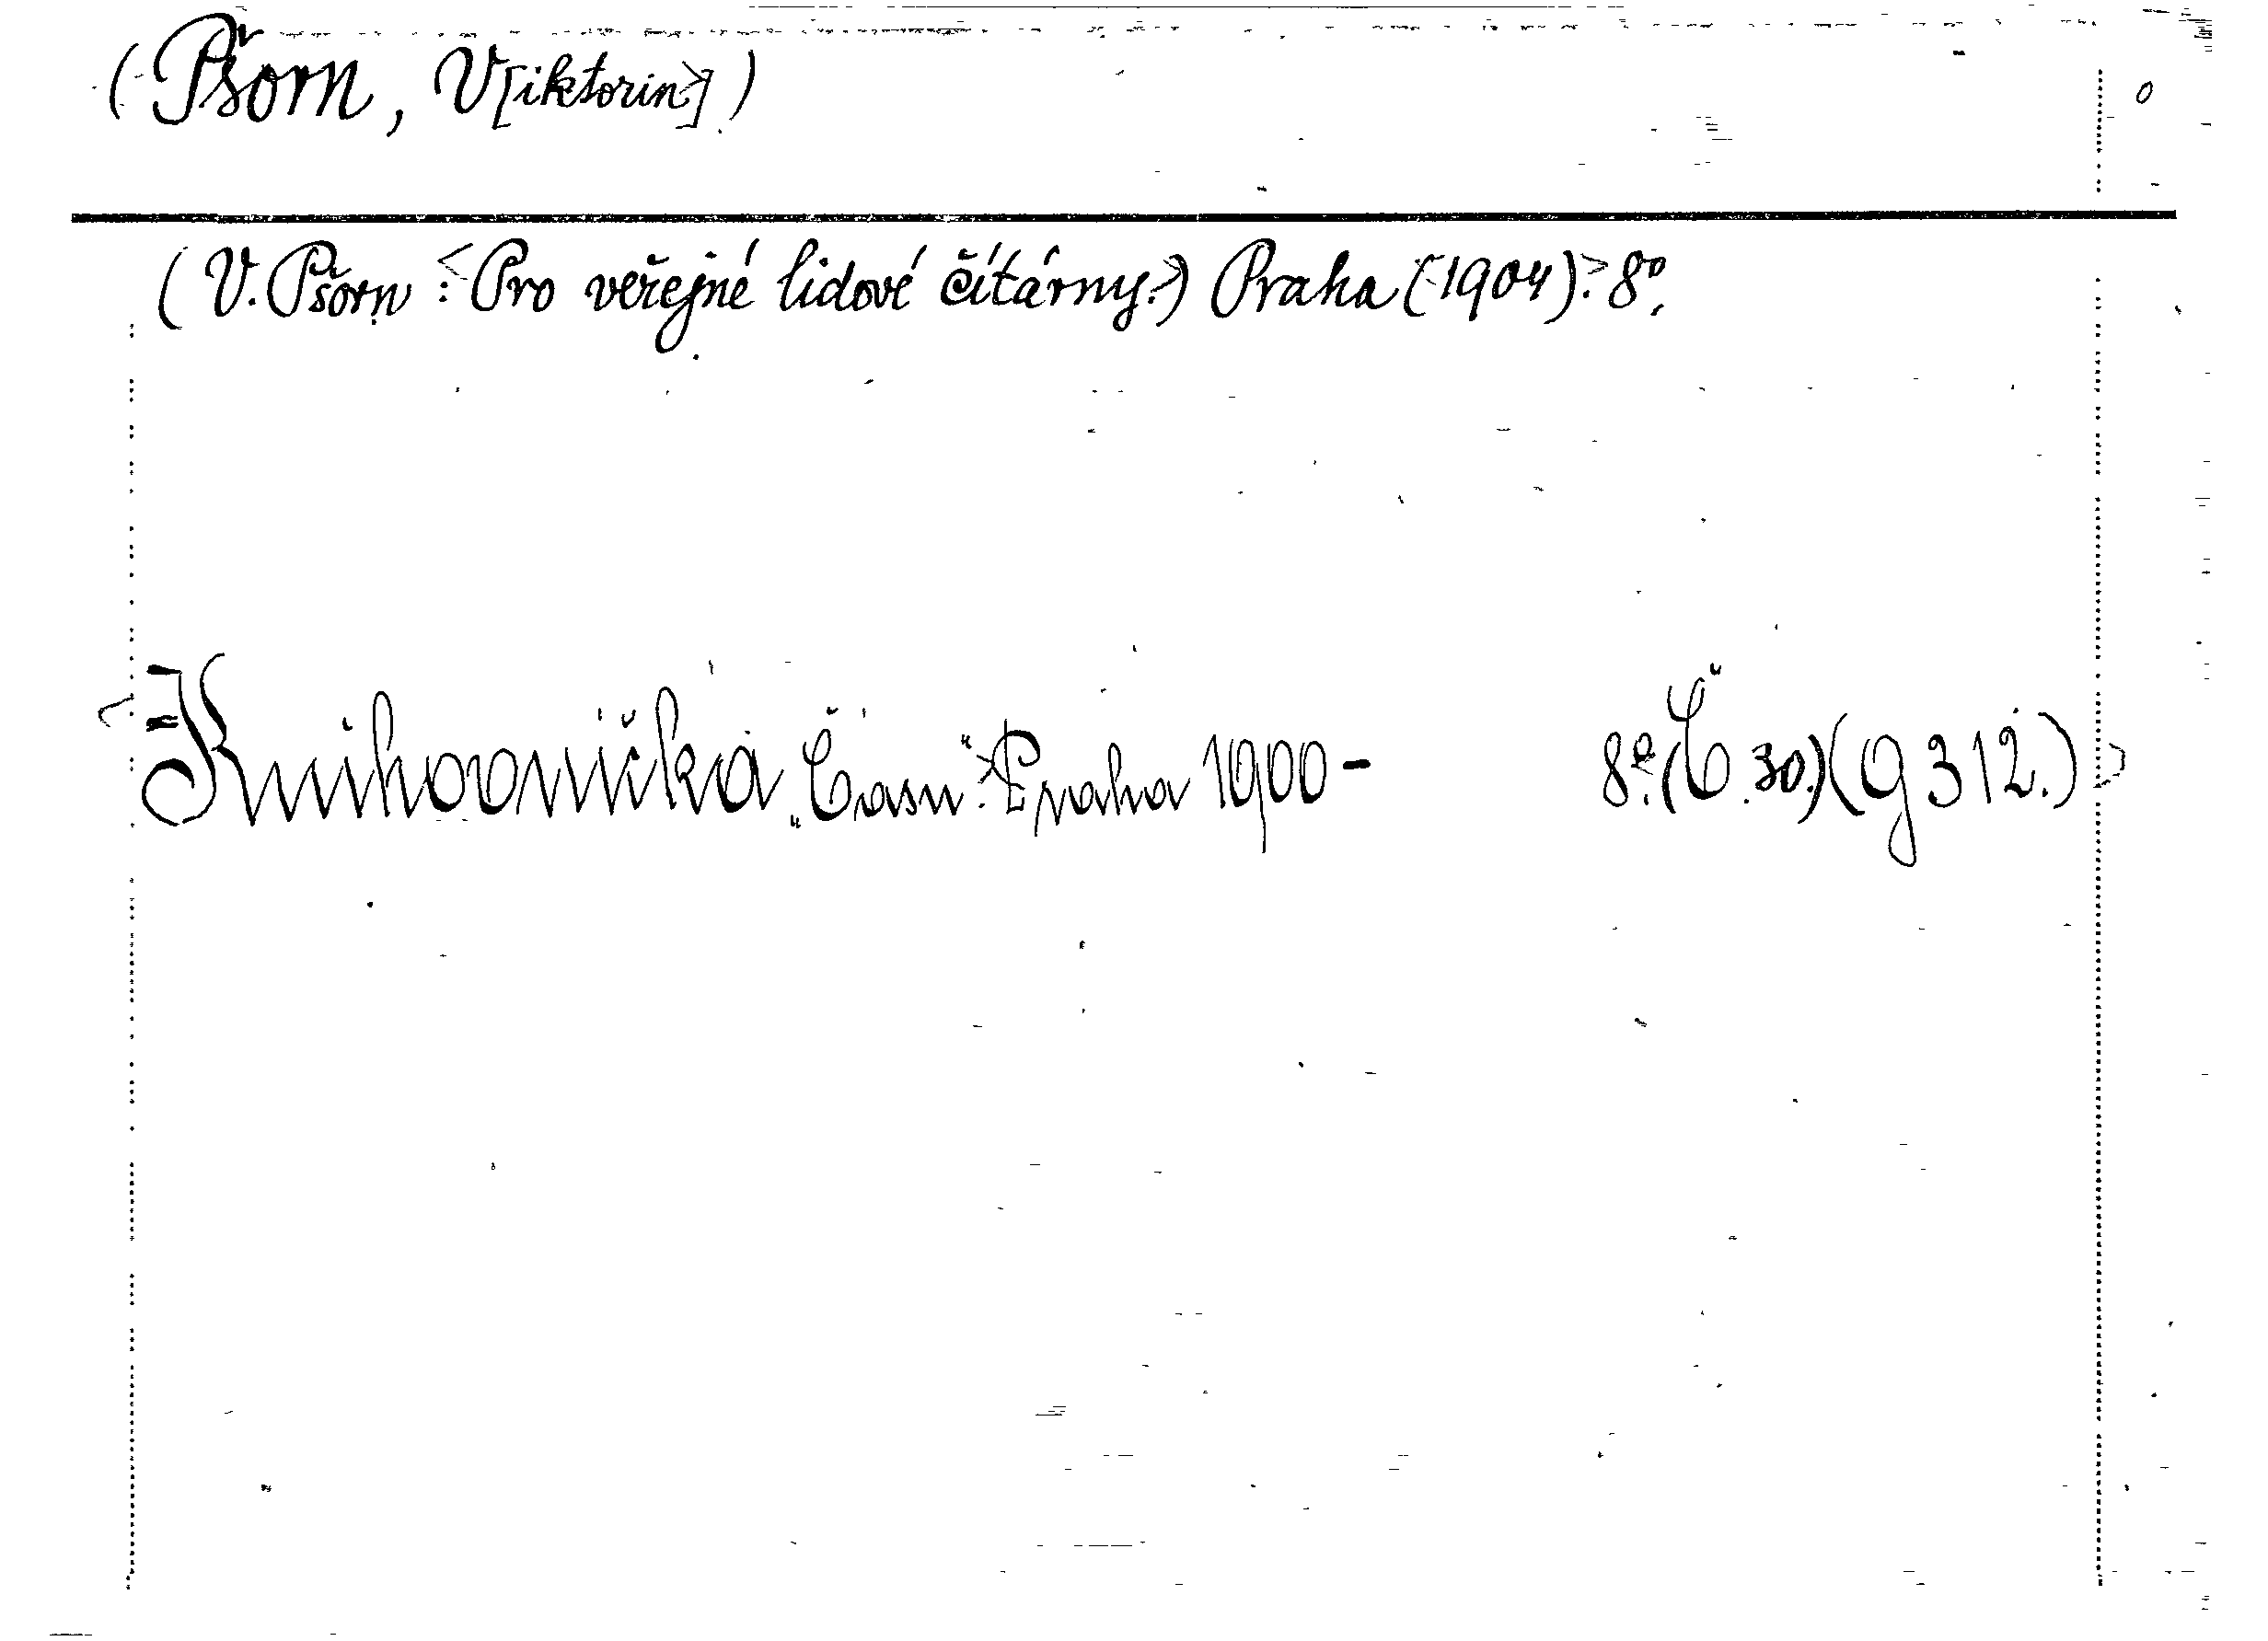 (Pšorn, V[iktorin])
0
(V. Pšorn: <Pro veřejné lidové čítárny.) Praha (1904).> 8º.
<Knihovnička „Času“.> Praha 1900- 8º. (Č. 30.) (g 312.)>